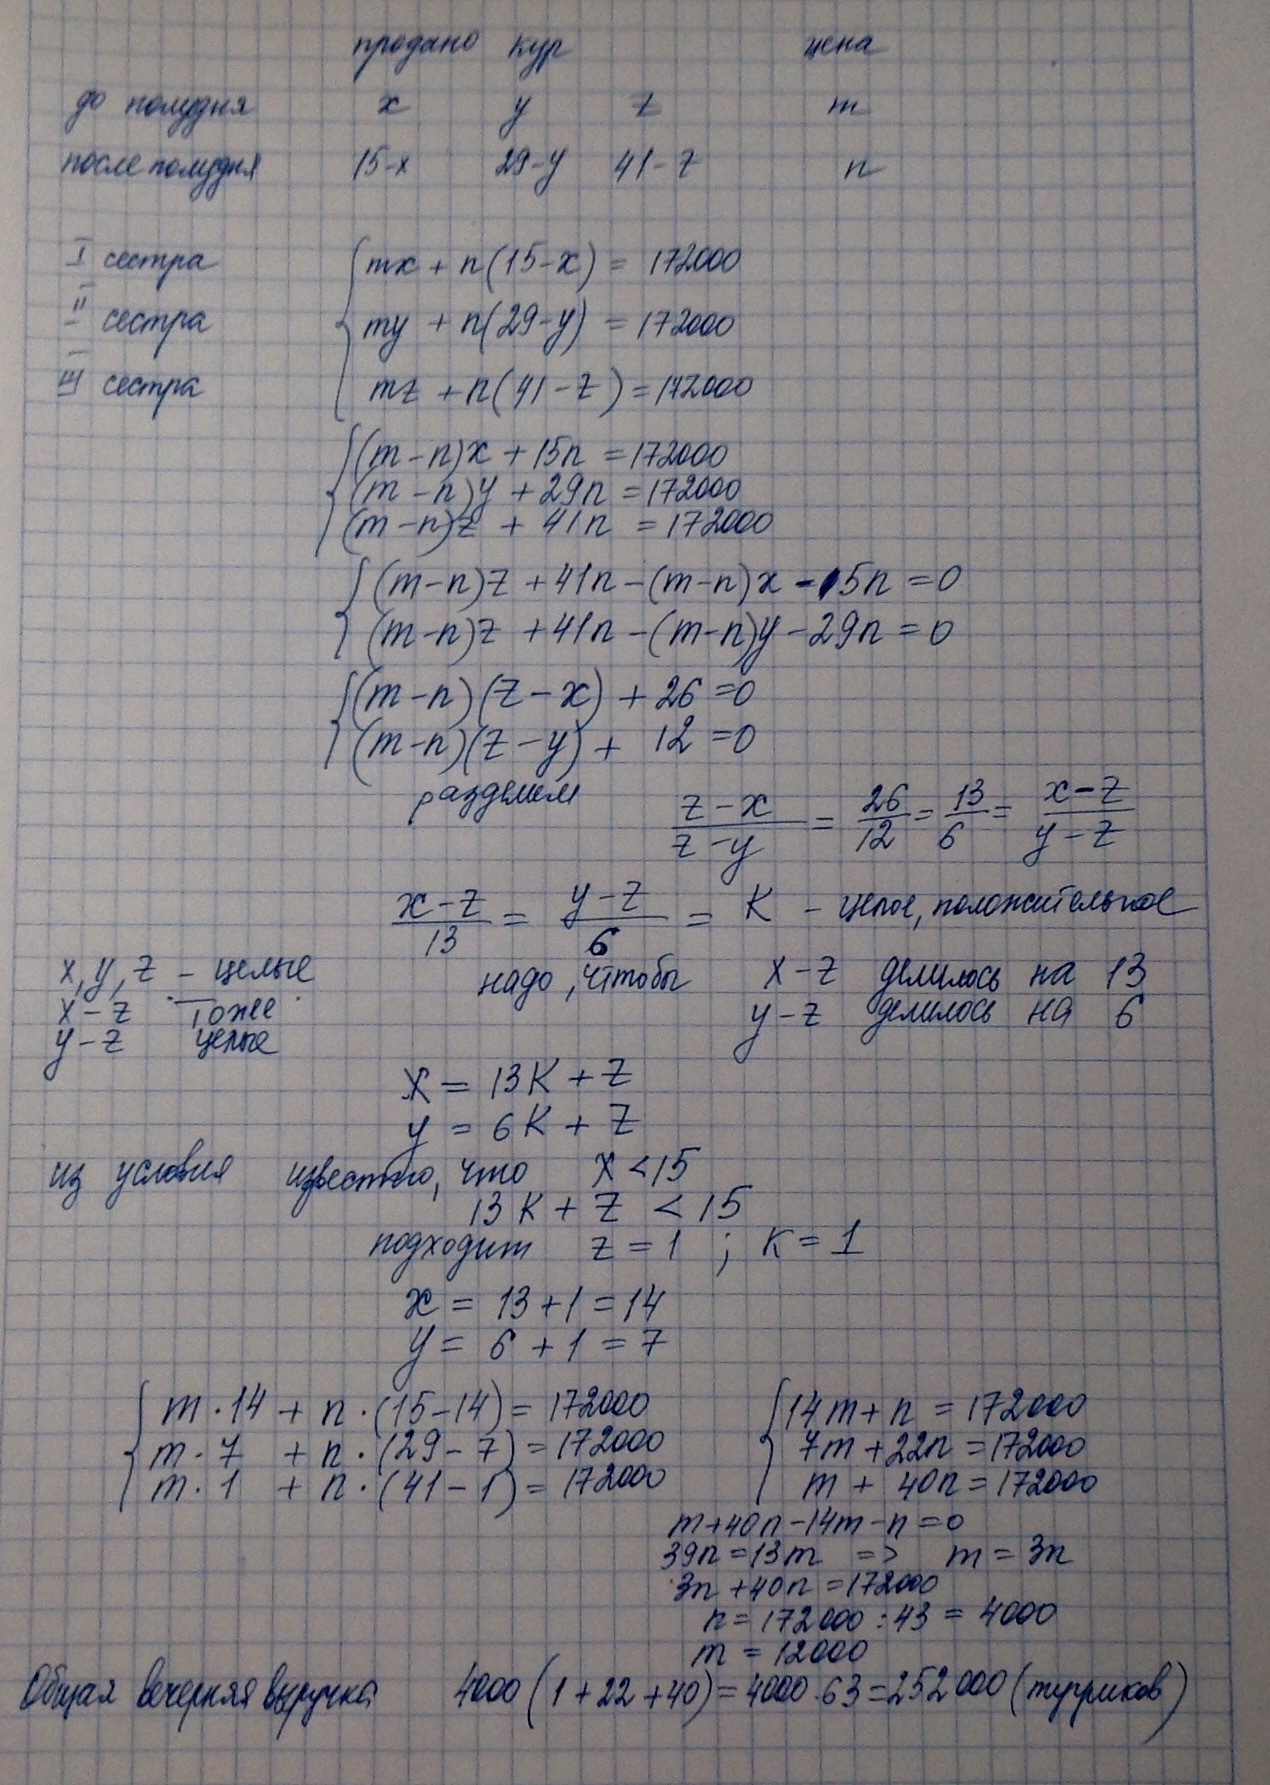 продано кур цена
до полудня x y z m
после полудня 15-x 29-y 41-z n
I сестра mx + n(15-x) = 172000
II сестра my + n(29-y) = 172000
III сестра mz + n(41-z) = 172000
(m-n)x + 15n = 172000
(m-n)y + 29n = 172000
(m-n)z + 41n = 172000
(m-n)z + 41n - (m-n)x - 15n = 0
(m-n)z + 41n - (m-n)y - 29n = 0
(m-n)(z-x) + 26 = 0
(m-n)(z-y) + 12 = 0
разделим (z-x)/(z-y) = 26/12 = 13/6 = (x-z)/(y-z)
(x-z)/13 = (y-z)/6 = K - целое, положительное
x, y, z - целые надо, чтобы x-z делилось на 13
x-z тоже y-z делилось на 6
y-z целые
x = 13K + z
y = 6K + z
из условия известно, что x < 15
13K + z < 15
подходит z = 1 ; K = 1
x = 13 + 1 = 14
y = 6 + 1 = 7
m·14 + n·(15-14) = 172000 14m + n = 172000
m·7 + n·(29-7) = 172000 7m + 22n = 172000
m·1 + n·(41-1) = 172000 m + 40n = 172000
m+40n-14m-n=0
39n = 13m => m = 3n
3n + 40n = 172000
n = 172000 : 43 = 4000
m = 12000
Общая вечерняя выручка 4000(1+22+40) = 4000·63 = 252000 (тугриков)